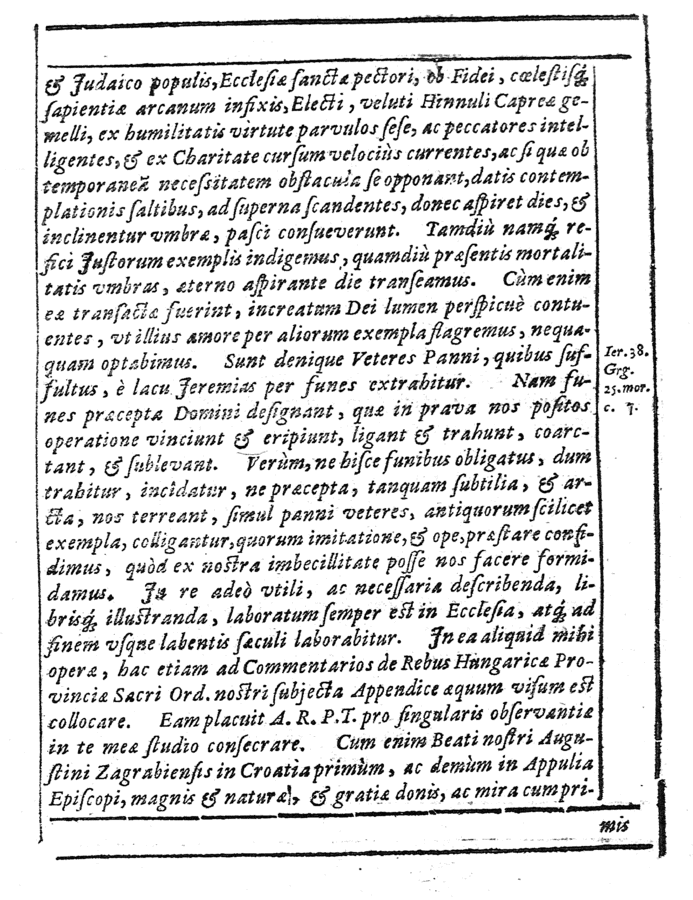 & Judaico populis, Ecclesiæ sanctæ pectori, ob Fidei, cœlestisq́;
sapientiæ arcanum infixis, Electi, veluti Hinnuli Capreæ ge-
melli, ex humilitatis virtute parvulos sese, ac peccatores intel-
ligentes, & ex Charitate cursum velociùs currentes, ac si quæ ob
temporaneã necessitatem obstacula se opponant, datis contem-
plationis saltibus, ad superna scandentes, donec aspiret dies, &
inclinentur vmbræ, pasci consueverunt. Tamdiù namq́; re-
fici Justorum exemplis indigemus, quamdiù præsentis mortali-
tatis vmbras, æterno aspirante die transeamus. Cùm enim
eæ transactæ fuerint, increatum Dei lumen perspicuè contu-
entes, vt illius amore per aliorum exempla flagremus, nequa-
quam optabimus. Sunt denique Veteres Panni, quibus suf-
fultus, è lacu Jeremias per funes extrahitur. Nam fu-
nes præcepta Domini designant, quæ in prava nos positos
operatione vinciunt & eripiunt, ligant & trahunt, coarc-
tant, & sublevant. Verùm, ne hisce funibus obligatus, dum
trahitur, incidatur, ne præcepta, tanquam subtilia, & ar-
cta, nos terreant, simul panni veteres, antiquorum scilicet
exempla, colligantur, quorum imitatione, & ope, præstare confi-
dimus, quòd ex nostra imbecillitate posse nos facere formi-
damus. In re adeò vtili, ac necessaria describenda, li-
brisq́; illustranda, laboratum semper est in Ecclesia, atq́; ad
finem vsque labentis sæculi laborabitur. In ea aliquid mihi
operæ, hac etiam ad Commentarios de Rebus Hungaricæ Pro-
vinciæ Sacri Ord. nostri subjecta Appendice æquum visum est
collocare. Eam placuit A. R. P. T. pro singularis observantiæ
in te meæ studio consecrare. Cum enim Beati nostri Augu-
stini Zagrabiensis in Croatia primùm, ac demùm in Appulia
Episcopi, magnis & naturæ, & gratiæ donis, ac mira cum pri-
mis
Ier. 38.
Grg.
25. mor.
c. 7.